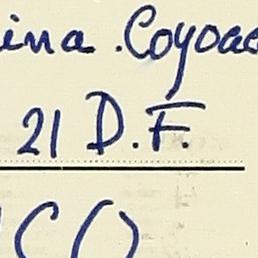 ina. Coyoac
21 D.F.
ICO